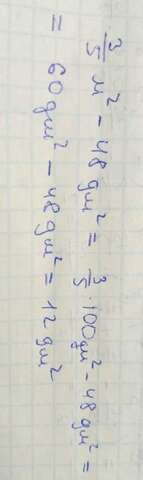 3/5 м² - 48 дм² = 3/5 · 100дм² - 48 дм² =
= 60дм² - 48дм² = 12 дм²